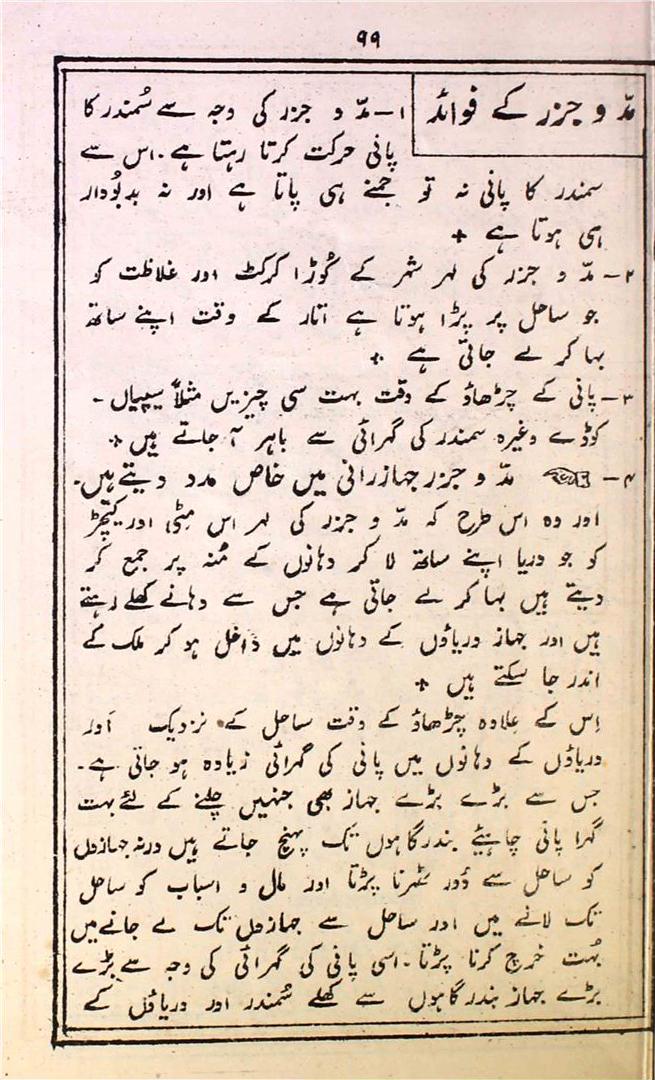 ۹۹
مدّ و جزر کے فوائد
۱- مدّ و جزر کی وجہ سے سُمندر کا
پانی حرکت کرتا رہتا ہے۔ اس سے
سمندر کا پانی نہ تو جمنے ہی پاتا ہے اور نہ بدبُودار
ہی ہوتا ہے +
۲- مدّ و جزر کی لہر شہر کے کُوڑا کرکٹ اور غلاظت کو
جو ساحل پر پڑا ہوتا ہے اتار کے وقت اپنے ساتھ
بہا کر لے جاتی ہے +
۳- پانی کے چڑھاؤ کے وقت بہت سی چیزیں مثلاً سیپیاں -
کوڈے وغیرہ سمندر کی گہرائی سے باہر آ جاتے ہیں +
۴- ☜ مدّ و جزر جہازرانی میں خاص مدد دیتے ہیں۔
اور وہ اس طرح کہ مدّ و جزر کی لہر اس مِٹی اور کیچڑ
کو جو دریا اپنے ساتھ لا کر دہانوں کے مُنہ پر جمع کر
دیتے ہیں بہا کر لے جاتی ہے جس سے دہانے کھلے رہتے
ہیں اور جہاز دریاؤں کے دہانوں میں داخل ہو کر ملک کے
اندر جا سکتے ہیں +
اِس کے عِلاوہ چڑھاؤ کے وقت ساحل کے نزدیک اور
دریاؤں کے دہانوں میں پانی کی گہرائی زیادہ ہو جاتی ہے۔
جس سے بڑے بڑے جہاز بھی جنہیں چلنے کے لئے بہت
گہرا پانی چاہیئے بندرگاہوں تک پہنچ جاتے ہیں ورنہ جہازوں
کو ساحل سے دُور ٹھہرنا پڑتا اور مال و اسباب کو ساحل
تک لانے میں اور ساحل سے جہازوں تک لے جانے میں
بُہت خرچ کرنا پڑتا۔ اسی پانی کی گہرائی کی وجہ سے بڑے
بڑے جہاز بندرگاہوں سے کھلے سُمندر اور دریاؤں کے